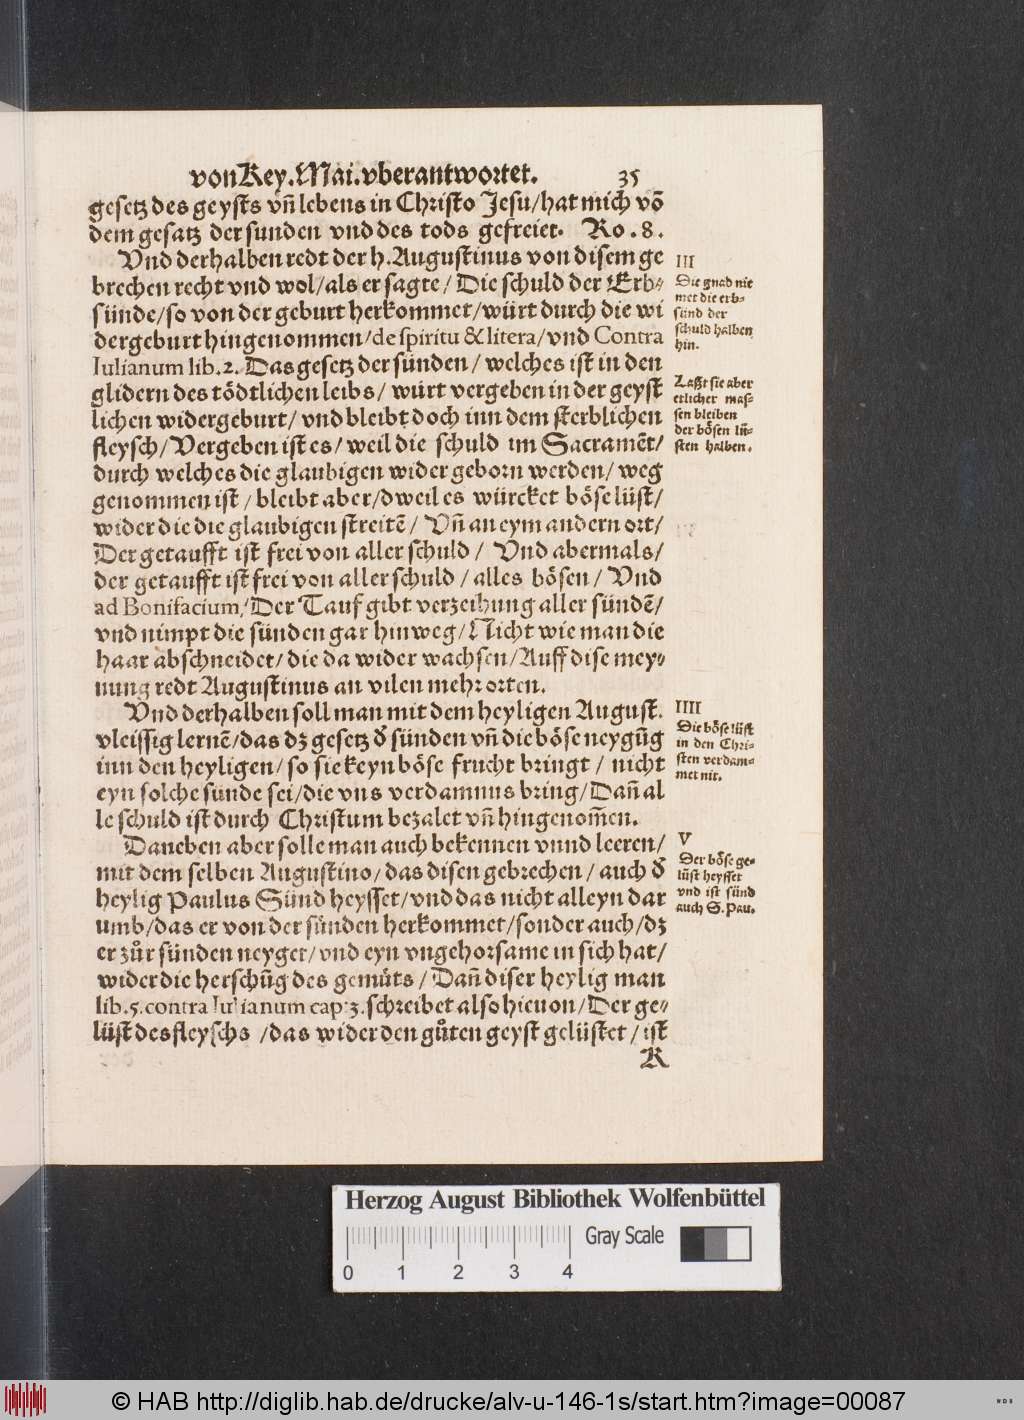 von Key. Mai. vberantwortet. 35
gesetz des geysts vñ lebens in Christo Jesu/hat mich võ
dem gesatz der sunden vnd des tods gefreiet. Ro. 8.
Vnd derhalben redt der h. Augustinus von disem ge
brechen recht vnd wol/als er sagte/Die schuld der Erb⸗
sünde/so von der geburt herkommet/würt durch die wi
dergeburt hingenommen/de spiritu & litera/vnd Contra
Iulianum lib. 2. Das gesetz der sünden/welches ist in den
glidern des tödtlichen leibs/würt vergeben in der geyst
lichen widergeburt/vnd bleibt doch inn dem sterblichen
fleysch/Vergeben ist es/weil die schuld im Sacramēt/
durch welches die glaubigen wider geborn werden/weg
genommen ist/bleibt aber/dweil es würcket böse lüst/
wider die die glaubigen streitē/Vñ an eym andern ort/
Der getaufft ist frei von aller schuld/Vnd abermals/
der getaufft ist frei von aller schuld/alles bösen/Vnd
ad Bonifacium/Der Tauf gibt verzeihung aller sündē/
vnd nimpt die sünden gar hinweg/Nicht wie man die
haar abschneidet/die da wider wachsen/Auff dise mey⸗
nung redt Augustinus an vilen mehr orten.
Vnd derhalben soll man mit dem heyligen August.
vleissig lernē/das dz gesetz d̄ sünden vñ die böse neygūg
inn den heyligen/so sie keyn böse frucht bringt/nicht
eyn solche sünde sei/die vns verdamnus bring/Dañ al
le schuld ist durch Christum bezalet vñ hingenom̄en.
Daneben aber solle man auch bekennen vnnd leeren/
mit dem selben Augustino/das disen gebrechen/auch d̄
heylig Paulus Sünd heysset/vnd das nicht alleyn dar
umb/das er von der sünden herkommet/sonder auch/dz
er zůr sünden neyget/vnd eyn vngehorsame in sich hat/
wider die herschūg des gemüts/Dañ diser heylig man
lib. 5. contra Iulianum cap. 3. schreibet also hieuon/Der ge⸗
lüst des fleyschs/das wider den gůten geyst gelüstet/ist
K
III
Die gnad nie
met die erb⸗
sünd der
schuld halben
hin.
Laßt sie aber
etlicher mas⸗
sen bleiben
der bösen lǖ⸗
sten halben.
IIII
Die böse lüst
in den Chri⸗
sten verdam⸗
met nit.
V
Der böse ge⸗
lüst heysset
vnd ist sünd
auch S. Pau.
Herzog August Bibliothek Wolfenbüttel
Gray Scale
0 1 2 3 4
© HAB http://diglib.hab.de/drucke/alv-u-146-1s/start.htm?image=00087